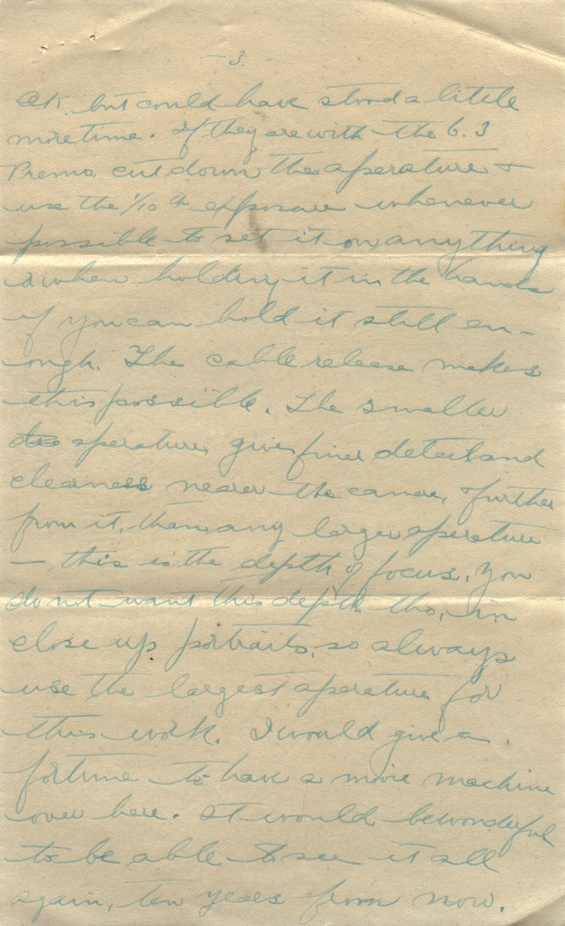 - 3. -
OK. but could have stood a little
more time. If they are with the 6.3
Premo, cut down the aperature &
use the 1/10 th exposure whenever
possible to set it on anything
& when holding it in the hands
if you can hold it still en-
ough. The cable release makes
this possible. The smaller
aperature, gives finer detail and
clearness nearer the camera, & further
from it, than any larger aperature
—, this is the depth of focus. You
do not want this depth tho, in
close up portraits, so always
use the largest aperature for
this work. I would give a
fortune to have a movie machine
over here. It would be wonderful
to be able to see it all
again, ten years from now.